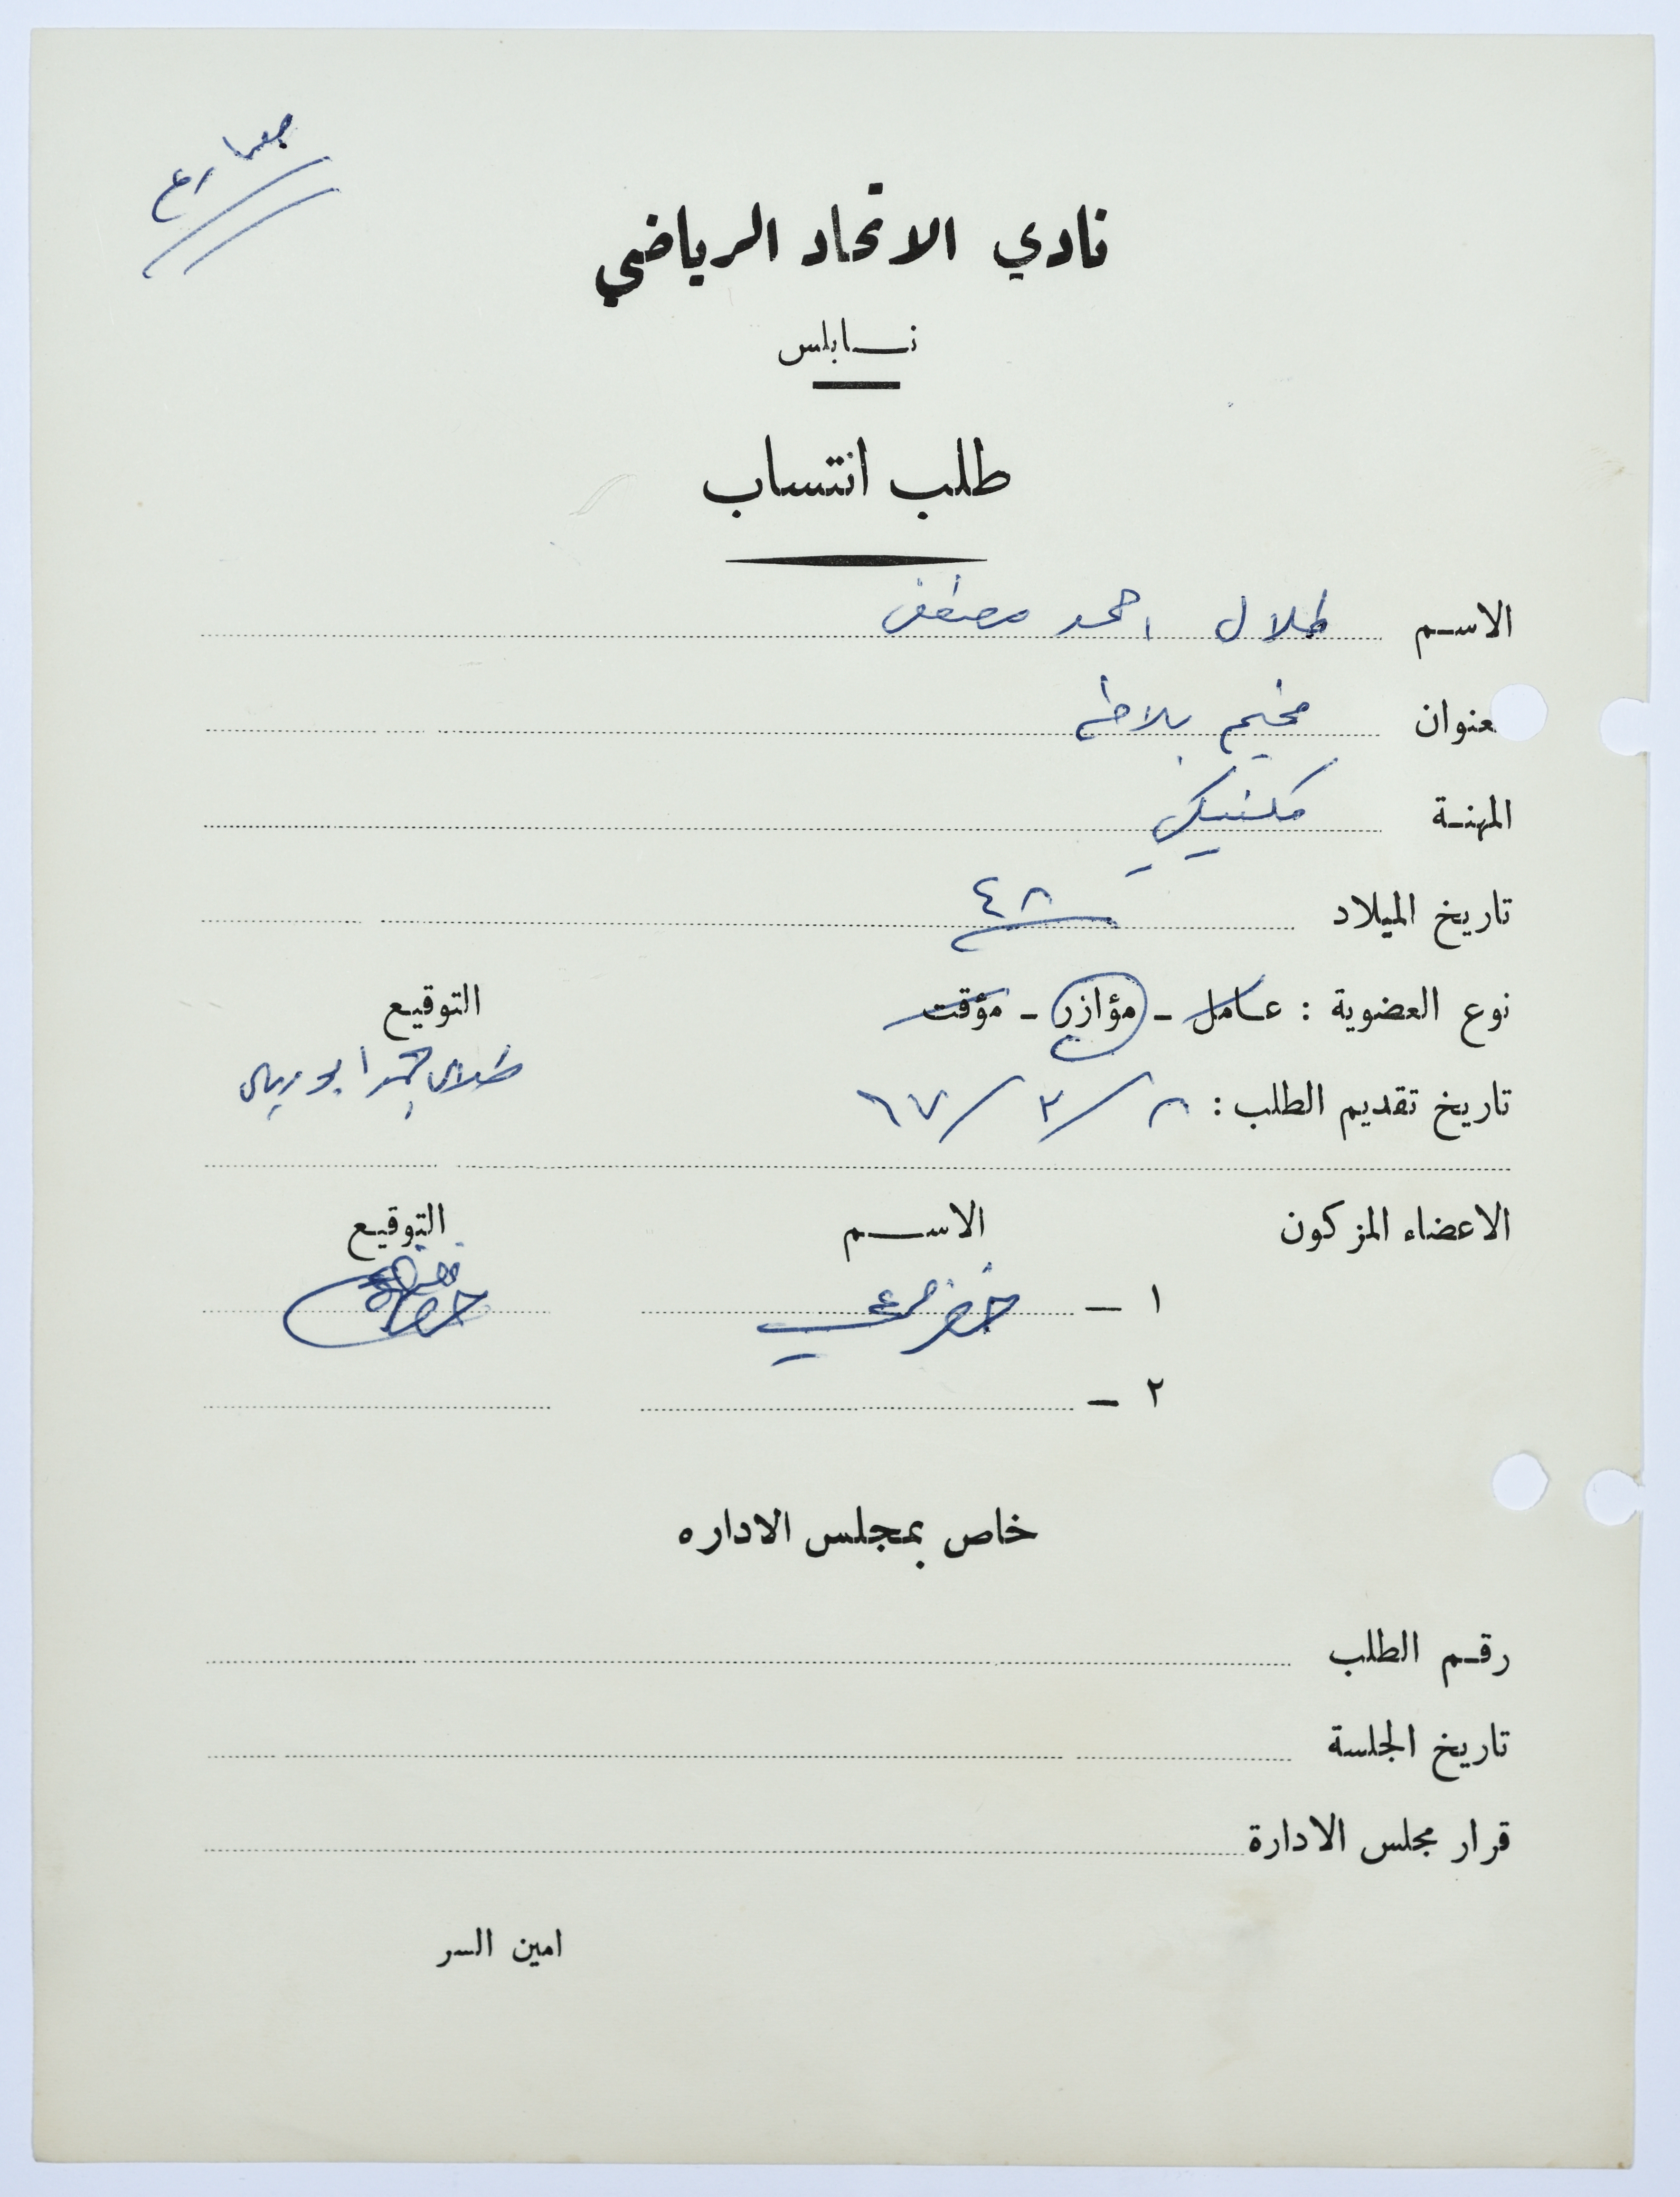 نادي الاتحاد الرياضي
نابلس
طلب انتساب
الاسم طلال احمد مصطفى
عنوان مخيم بلاطه
المهنة مكنيكي
تاريخ الميلاد ٤٨
نوع العضوية : عامل - مؤازر - مؤقت التوقيع
طلال احمد ابو
تاريخ تقديم الطلب : ٨ / ٢ / ٦٧
الاعضاء المزكون الاسم التوقيع
١ - خضر مرعي
٢ -
خاص بمجلس الاداره
رقم الطلب
تاريخ الجلسة
قرار مجلس الادارة
امين السر